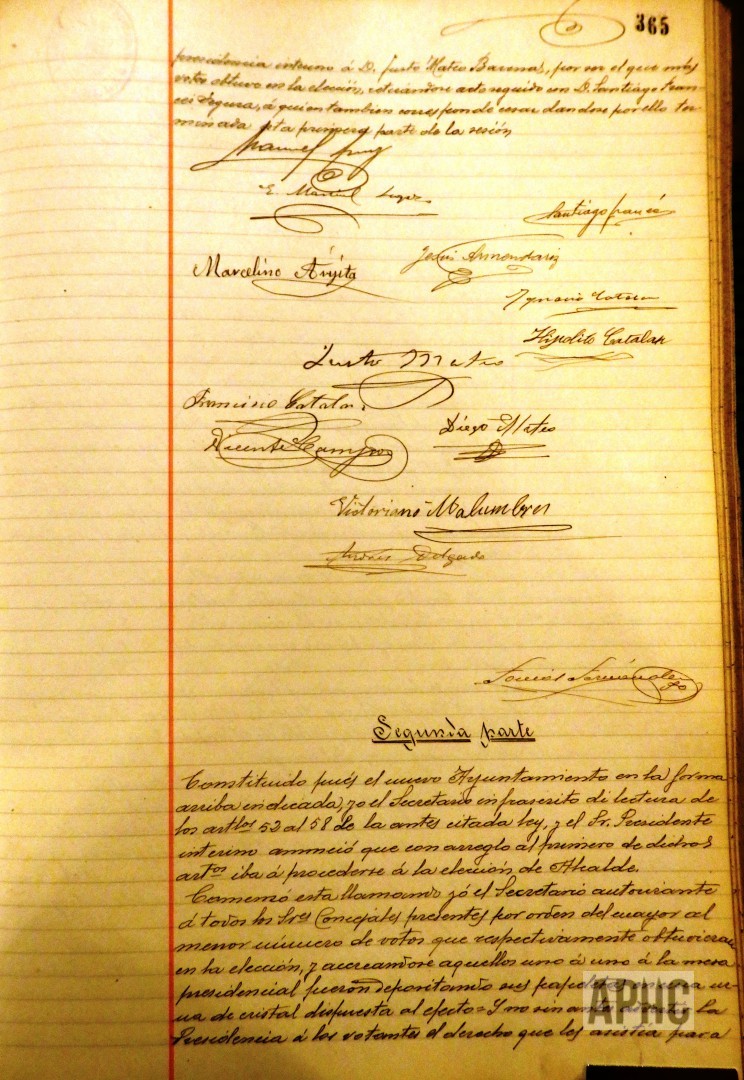 365
presidencia interino á D. Justo Mateo Barenas, por ser el que más
votos obtuvo en la elección, retirándose acto seguido con D. Santiago Fran-
cés Segura, á quien tambien corresponde cesar dandose por ello ter-
minada esta primera parte de la sesión
Manuel
E. Marcial
Santiago Francés
Marcelino Arpita
Jesús Armendariz
Ygnacio
Hipolito Catalan
Justo Mateo
Francisco Catalan
Diego Mateo
Vicente Campos
Victoriano Malumbres
Andrés Delgado
Tomás Fernández
Segunda parte
Constituido pués el nuevo Ayuntamiento en la forma
arriba indicada, yo el Secretario infrascrito di lectura de
los artlos 52 al 58 de la antes citada ley, y el Sr. Presidente
interino anunció que con arreglo al primero de dichos
artos iba á procederse á la elección de Alcalde.
Comenzó esta llamando yó el Secretario autorizante
á todos los Sres Concejales presentes por orden del mayor al
menor número de votos que respectivamente obtuvieran
en la elección, y acercandose aquellos uno á uno á la mesa
presidencial fueron depositando sus papeletas en una ur-
na de cristal dispuesta al efecto = Y no sin antes la
Presidencia á los votantes el derecho que les asistia para
APHC